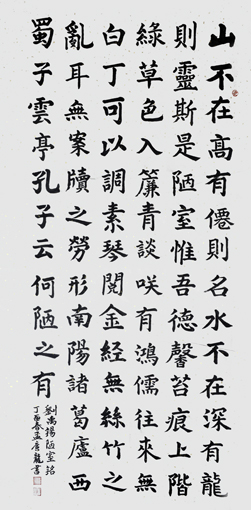 山不在高有僊則名水不在深有龍
則靈斯是陋室惟吾德馨苔痕上階
綠草色入簾青談咲有鴻儒往來無
白丁可以調素琴閱金經無絲竹之
亂耳無案牘之勞形南陽諸葛廬西
蜀子雲亭孔子云何陋之有
劉禹錫陋室銘
丁酉春孟